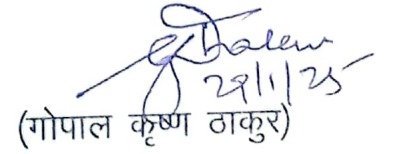 29/1/25
(गोपाल कृष्ण ठाकुर)